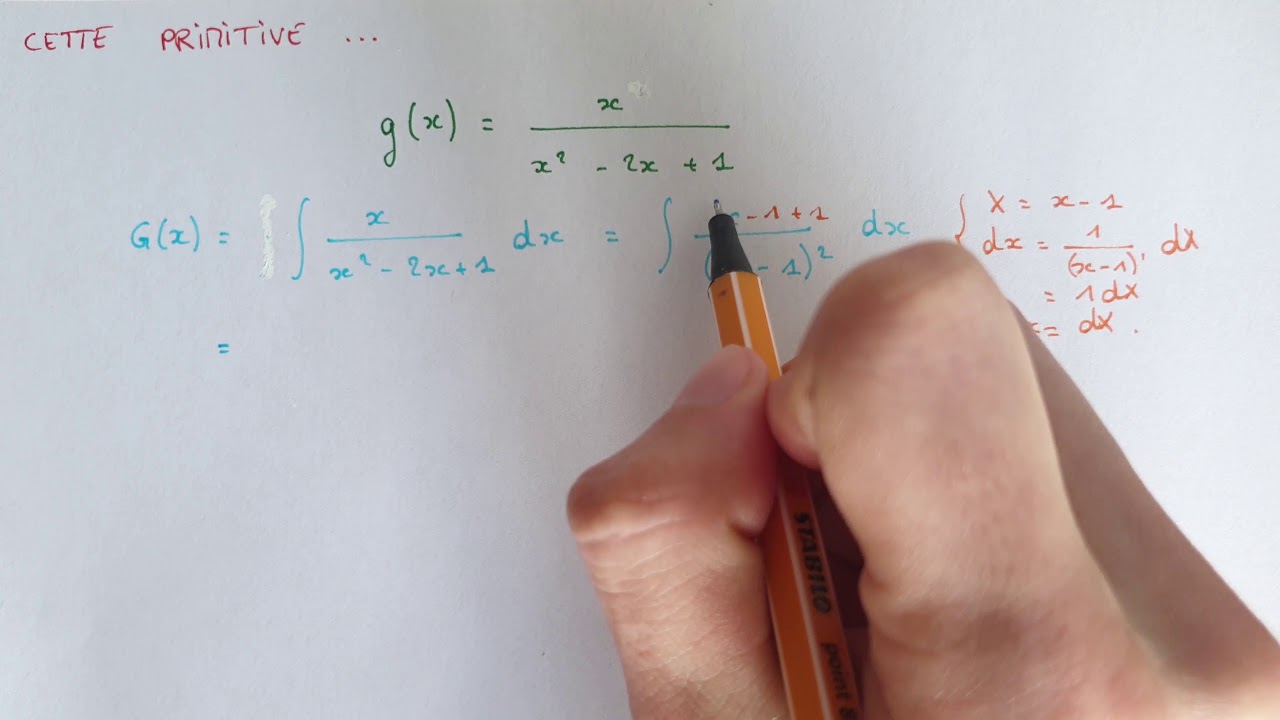 CETTE PRIMITIVE ...
g(x) = x / (x² - 2x + 1)
G(x) = ∫ x / (x² - 2x + 1) dx = ∫ - 1 + 1 / ( - 1)² dx
{ X = x - 1
dx = 1 / (x - 1)' dX
= 1 dX
= dX .
=
STABILO point 8